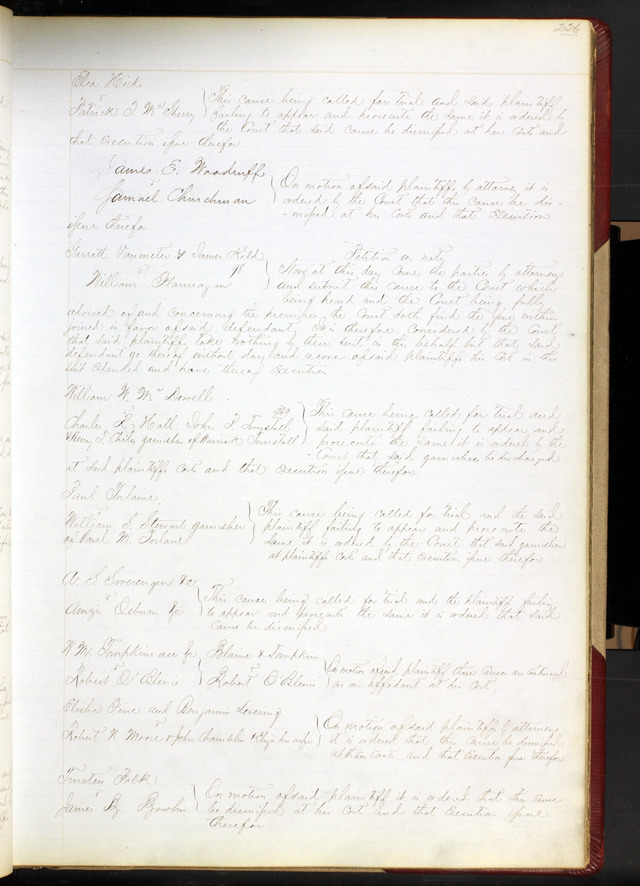 226
Elsa Hicks
vs
Patrick T McSherry } This cause being called for trial and said plaintiff
failing to appear and prosecute the same it is ordered by
the Court that said cause be dismissed at her costs and
that Execution issue therefor
James E. Woodruff
vs
Samuel Churchman } On motion of said plaintiff by attorney it is
ordered by the Court that this cause be dis-
-missed at his costs and that Execution
issue therefor
Garrett Vanmeter & James Kidd
vs
William Flannagan } Petition on note
Now at this day come the parties by attorneys
and submit this cause to the Court which
being heard and the Court being fully
advised of and concerning the premises, the Court doth find the issue within
joined in favor of said defendant, It is therefore Considered by the Court
that said plaintiffs take nothing by their suit in this behalf but that said
defendant go thereof without day and recover of said plaintiffs his cost in this
suit expended and have thereof Execution
William W. McDowell
vs
Charles L. Hall, John T
& Henry T. Chiles garnishee of } This cause being called for trial and
said plaintiff failing to appear and
prosecute the same it is ordered by the
Court that said garnishees be discharged
at said plaintiffs costs and that Execution issue therefor
Paul
vs
William S. Stewart garnishee
of Paul M. } This cause being called for trial and the said
plaintiff failing to appear and prosecute the
same it is ordered by the Court that said garnishee
at plaintiffs costs and that Execution issue therefor
A S Swerengen &c
vs
Amzi Osborn &c } This cause being called for trial and the plaintiffs failing
to appear and the same it is ordered that said
Cause be dismissed
W M. Tompkins &c Blaine & Tompkins
vs vs
Robert O'Blenis Robert O'Blenis } On motion of said plaintiffs these causes are continued
as on affidavit at his cost
Elisha Pine and Benjamin Lovering
vs
Robert N. Moore & John Chamblin & Eliza his wife } On motion of said plaintiffs by attorney
it is ordered that this cause be dismissed
at their costs and that Execution issue therefor
Trusten Polk
vs
James B. Bowlin } On motion of said plaintiff it is ordered that this cause
be dismissed at his costs and that Execution issue
therefor